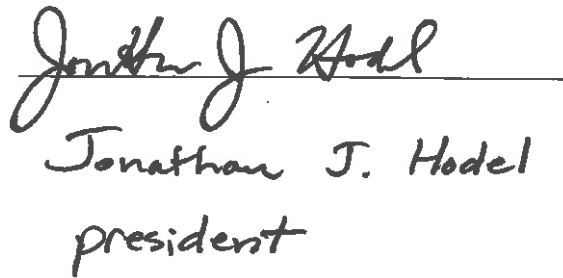 Jonathan J. Hodel
Jonathan J. Hodel
president